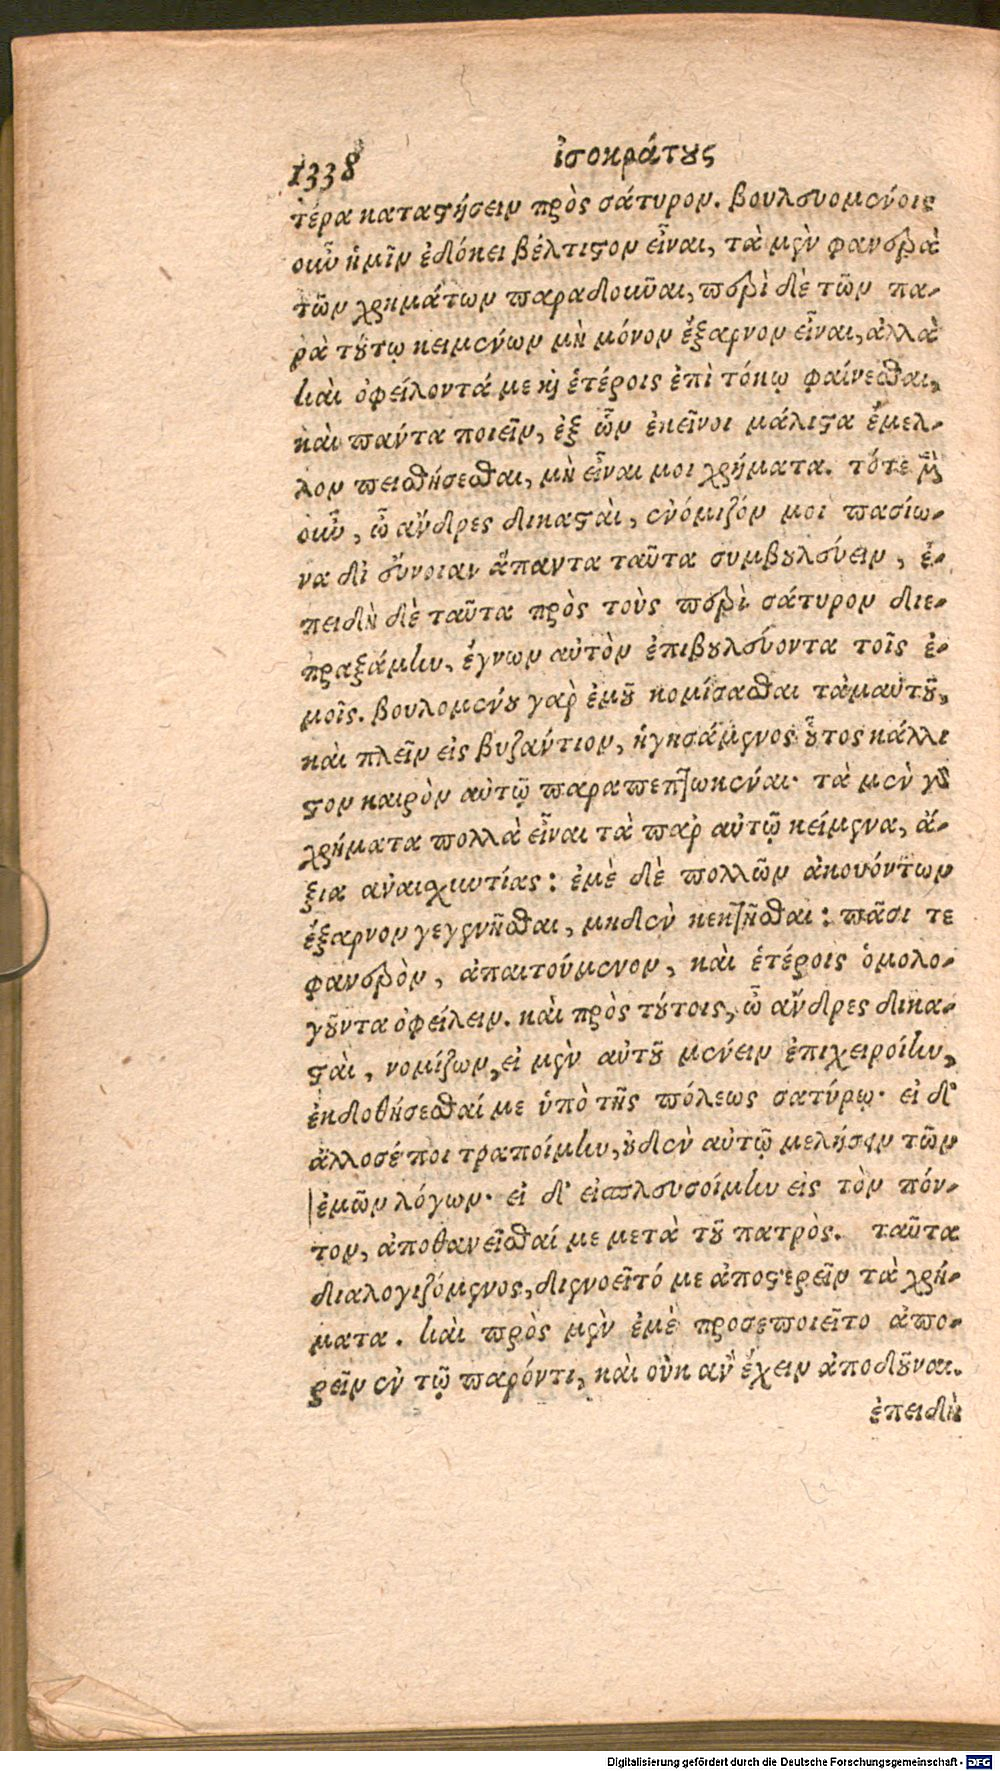 1338 ἰσοκράτους
τέρα καταστήσειν πρὸς σάτυρον. βουλευομένοις
οὖν ἡμῖν ἐδόκει βέλτιστον εἶναι, τὰ μὲν φανερὰ
τῶν χρημάτων παραδοῦναι, περὶ δὲ τῶν πα-
ρὰ τούτῳ κειμένων μὴ μόνον ἔξαρνον εἶναι, ἀλλὰ
καὶ ὀφείλοντά με καὶ ἑτέροις ἐπὶ τόκῳ φαίνεσθαι,
καὶ πάντα ποιεῖν, ἐξ ὧν ἐκεῖνοι μάλιστα ἔμελ-
λον πεισθήσεσθαι, μὴ εἶναι μοι χρήματα. τότε μὲν
οὖν, ὦ ἄνδρες δικασταὶ, ἐνόμιζόν μοι πασίω-
να δι εὔνοιαν ἅπαντα ταῦτα συμβουλεύειν, ἐ-
πειδὴ δὲ ταῦτα πρὸς τοὺς περὶ σάτυρον διε-
πραξάμην, ἔγνων αὐτὸν ἐπιβουλεύοντα τοῖς ἐ-
μοῖς. βουλομένου γὰρ ἐμοῦ κομίσασθαι τἀμαυτοῦ,
καὶ πλεῖν εἰς βυζάντιον, ἡγησάμενος οὗτος κάλλι
στον καιρὸν αὐτῷ παραπεπτωκέναι· τὰ μὲν γὰρ
χρήματα πολλὰ εἶναι τὰ παρ αὐτῷ κείμενα, ἄ-
ξια ἀναισχυντίας: ἐμὲ δὲ πολλῶν ἀκουόντων
ἔξαρνον γεγενῆσθαι, μηδὲν κεκτῆσθαι: πᾶσι τε
φανερὸν, ἀπαιτούμενον, καὶ ἑτέροις ὁμολο-
γοῦντα ὀφείλειν. καὶ πρὸς τούτοις, ὦ ἄνδρες δικα-
σταὶ, νομίζων, εἰ μὲν αὐτοῦ μένειν ἐπιχειροίην,
ἐκδοθήσεσθαί με ὑπὸ τῆς πόλεως σατύρῳ· εἰ δ'
ἄλλοσέ ποι τραποίμην, οὐδὲν αὐτῷ μελήσειν τῶν
ἐμῶν λόγων· εἰ δ' εἰσπλευσοίμην εἰς τὸν πόν-
τον, ἀποθανεῖσθαί με μετὰ τοῦ πατρὸς. ταῦτα
διαλογιζόμενος, διενοεῖτό με ἀποστερεῖν τὰ χρή-
ματα. καὶ πρὸς μὲν ἐμὲ προσεποιεῖτο ἀπο-
ρεῖν ἐν τῷ παρόντι, καὶ οὐκ ἂν ἔχειν ἀποδοῦναι.
ἐπειδὴ
Digitalisierung gefördert durch die Deutsche Forschungsgemeinschaft - DFG